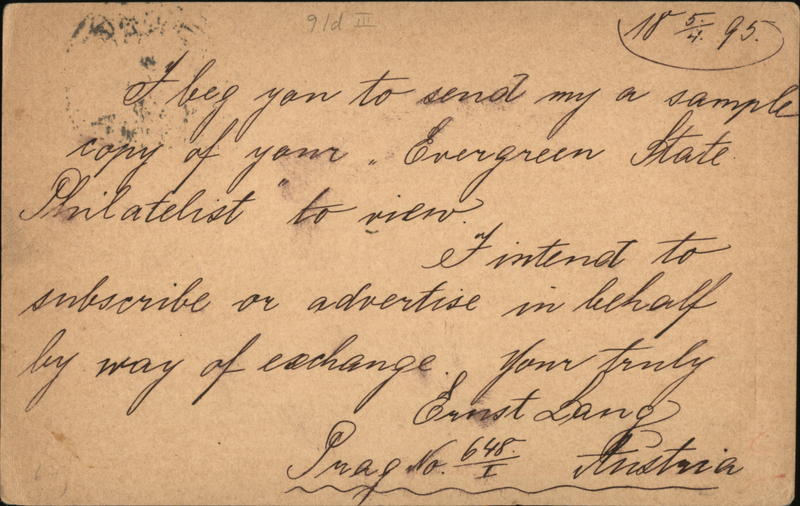 91d III
18 5./4. 95.
I beg you to send my a sample
copy of your „Evergreen State
Philatelist" to view.
I intend to
subscribe or advertise in behalf
by way of exchange. Your truly
Ernst Lang
Prag No. 648./I Austria